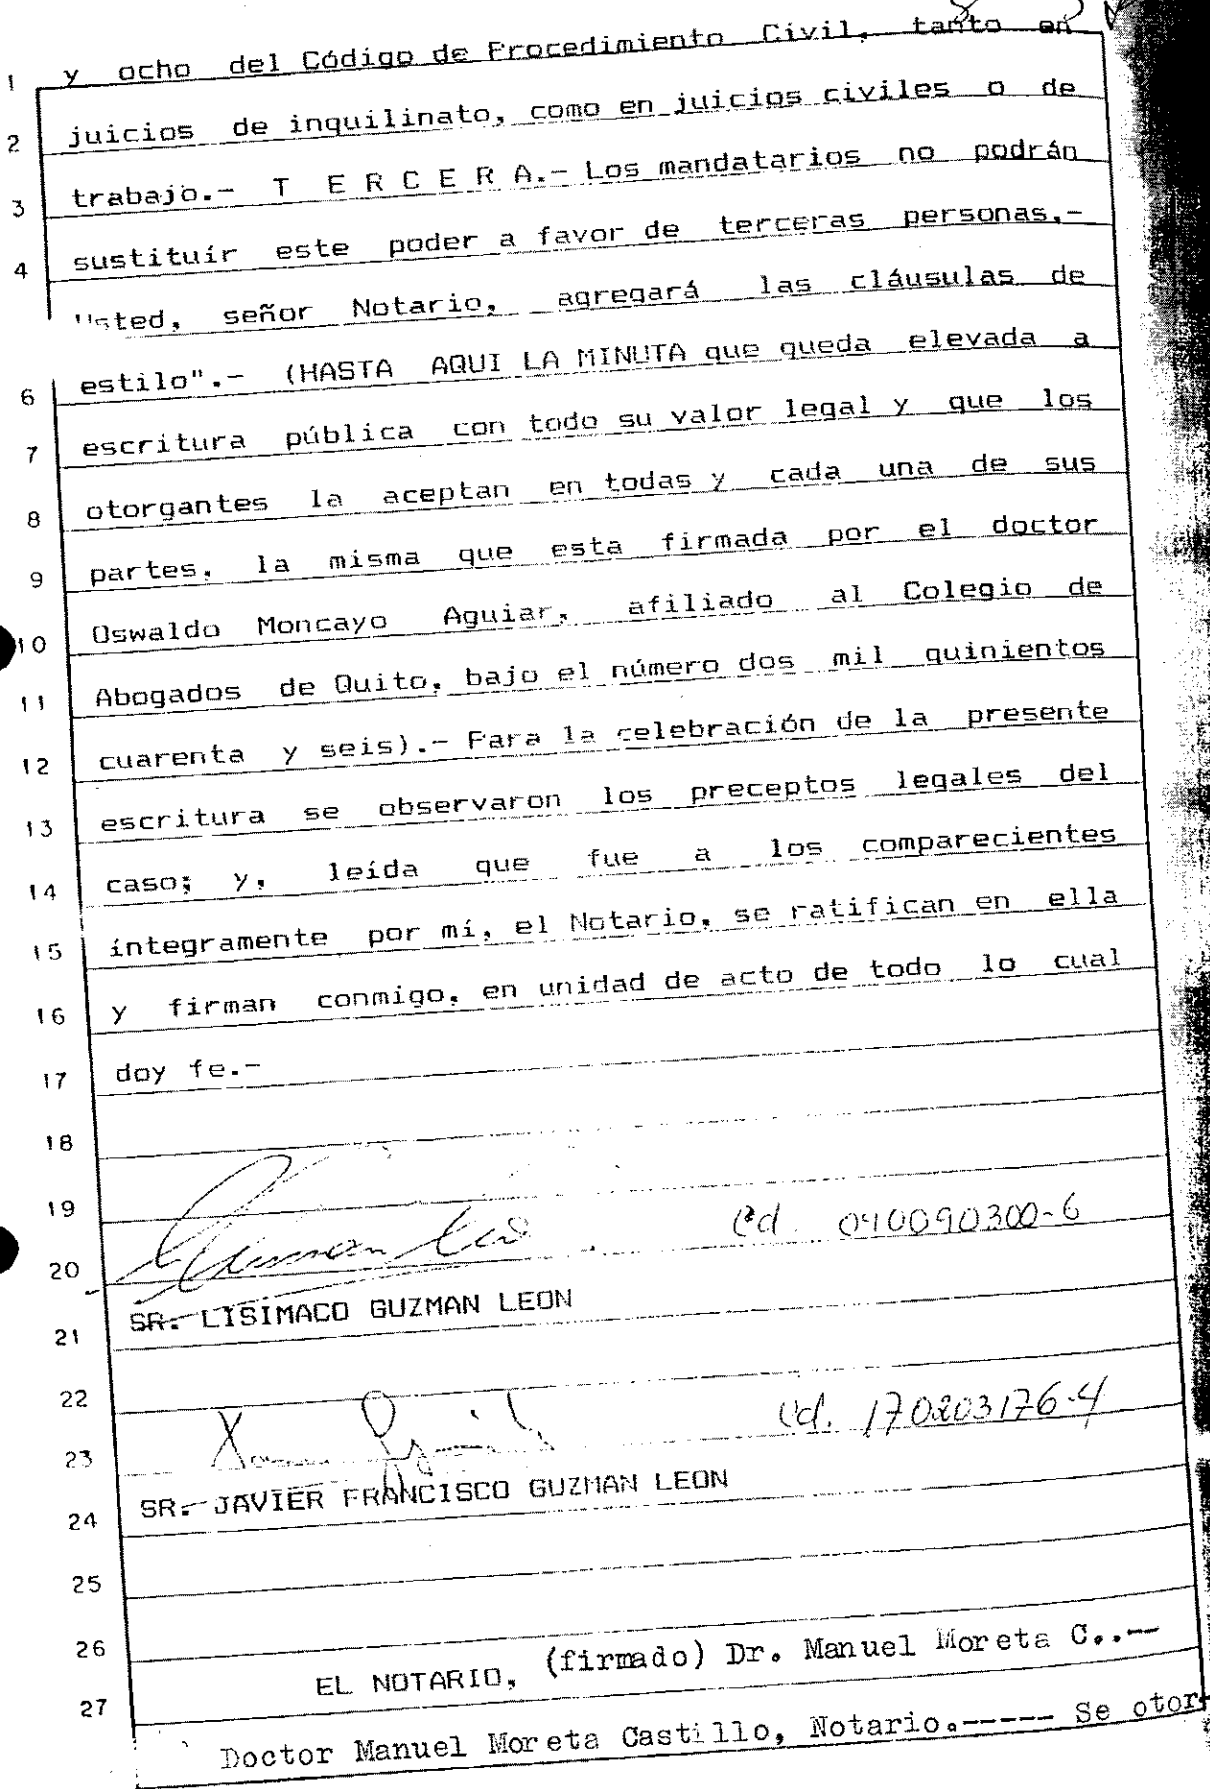 1 y ocho del Código de Procedimiento Civil, tanto en
2 juicios de inquilinato, como en juicios civiles o de
3 trabajo.- T E R C E R A.- Los mandatarios no podrán
4 sustituír este poder a favor de terceras personas.-
Usted, señor Notario, agregará las cláusulas de
6 estilo".- (HASTA AQUI LA MINUTA que queda elevada a
7 escritura pública con todo su valor legal y que los
8 otorgantes la aceptan en todas y cada una de sus
9 partes, la misma que esta firmada por el doctor
10 Oswaldo Moncayo Aguiar, afiliado al Colegio de
11 Abogados de Quito, bajo el número dos mil quinientos
12 cuarenta y seis).- Para la celebración de la presente
13 escritura se observaron los preceptos legales del
14 caso; y, leída que fue a los comparecientes
15 íntegramente por mí, el Notario, se ratifican en ella
16 y firman conmigo, en unidad de acto de todo lo cual
17 doy fe.-
18
19 040090300-6
20
21 SR. LISIMACO GUZMAN LEON
22
23 Cd. 170203176-4
24 SR. JAVIER FRANCISCO GUZMAN LEON
25
26
27 EL NOTARIO, (firmado) Dr. Manuel Moreta C..--
Doctor Manuel Moreta Castillo, Notario.----- Se otor-